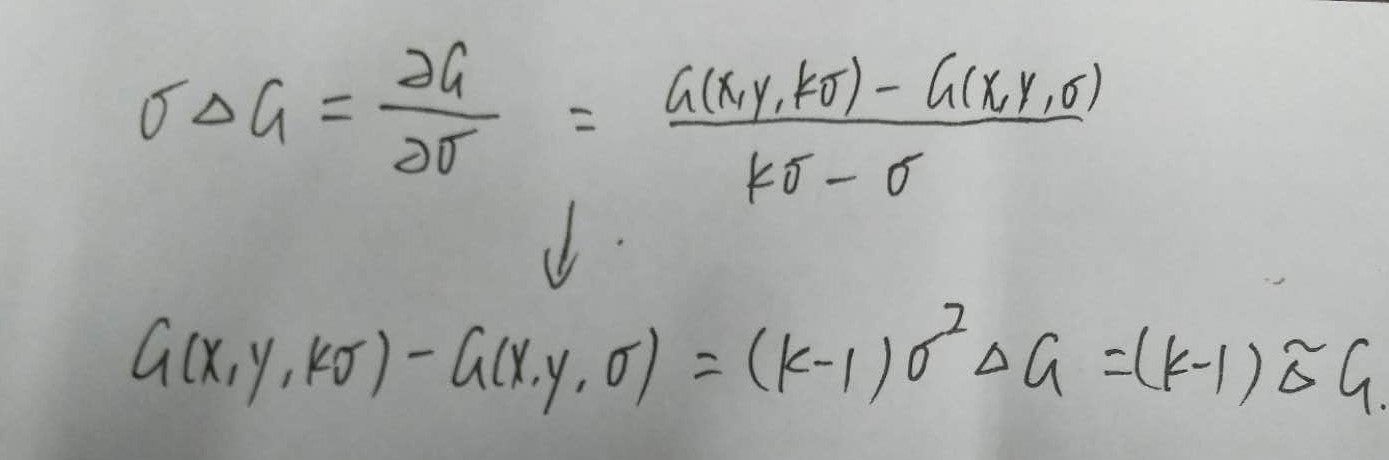 σ△G = ∂G/∂σ = (G(x,y,kσ) - G(x,y,σ))/(kσ - σ)
↓
G(x,y,kσ) - G(x,y,σ) = (k-1)σ²△G = (k-1)△̃G.